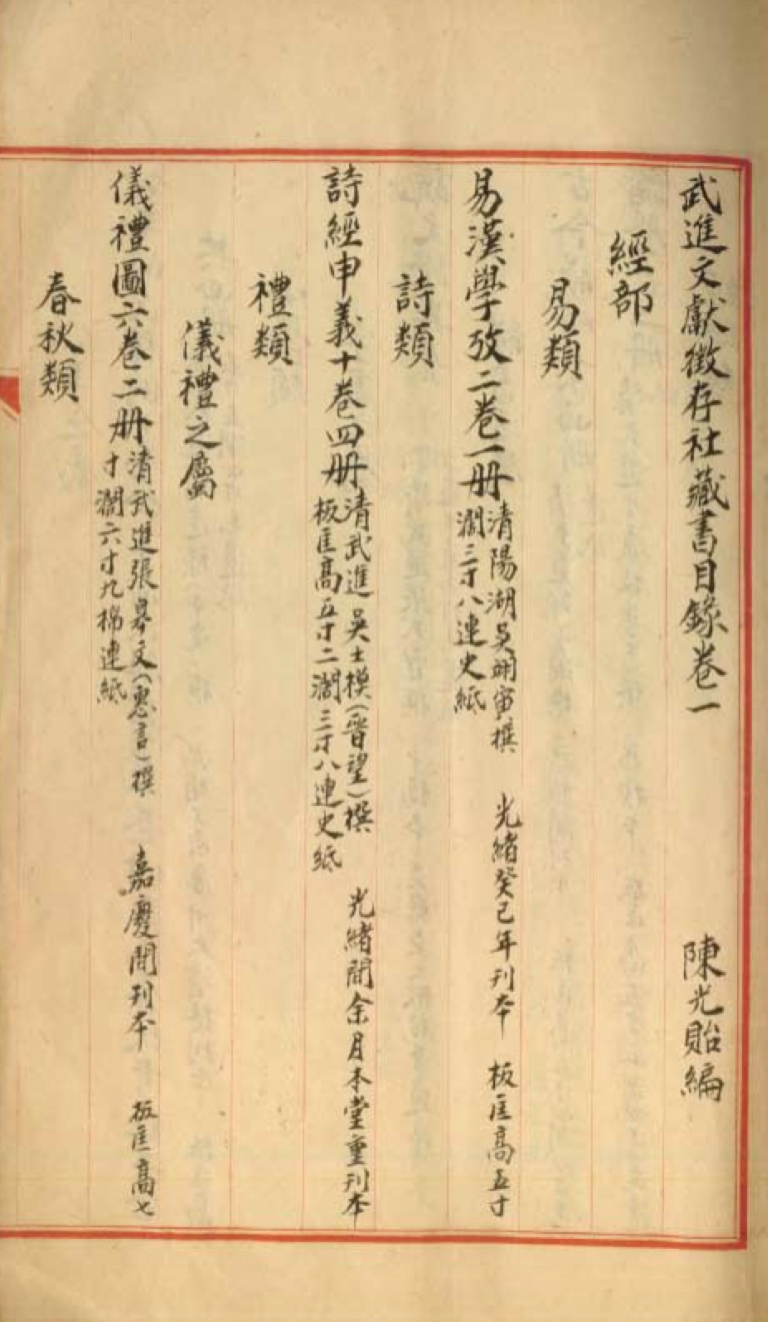 武進文獻徵存社藏書目錄卷一 陳光貽編
經部
易類
易漢學攷二卷一册 清陽湖吳翊寅撰 光緒癸巳年刊本 板匡高五寸
濶三寸八連史紙
詩類
詩經申義十卷四册 清武進吳士模(晉望)撰 光緒間余月本堂重刊本
板匡高五寸二濶三寸八連史紙
禮類
儀禮之屬
儀禮圖六卷二册 清武進張皋文(惠言)撰 嘉慶間刊本 板匡高七
寸濶六寸九棉連紙
春秋類